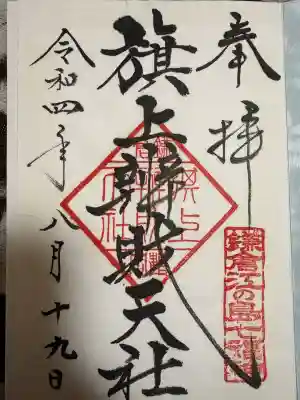 奉拝
鎌倉江の島七福神
旗上辨財天社
令和四年八月十九日